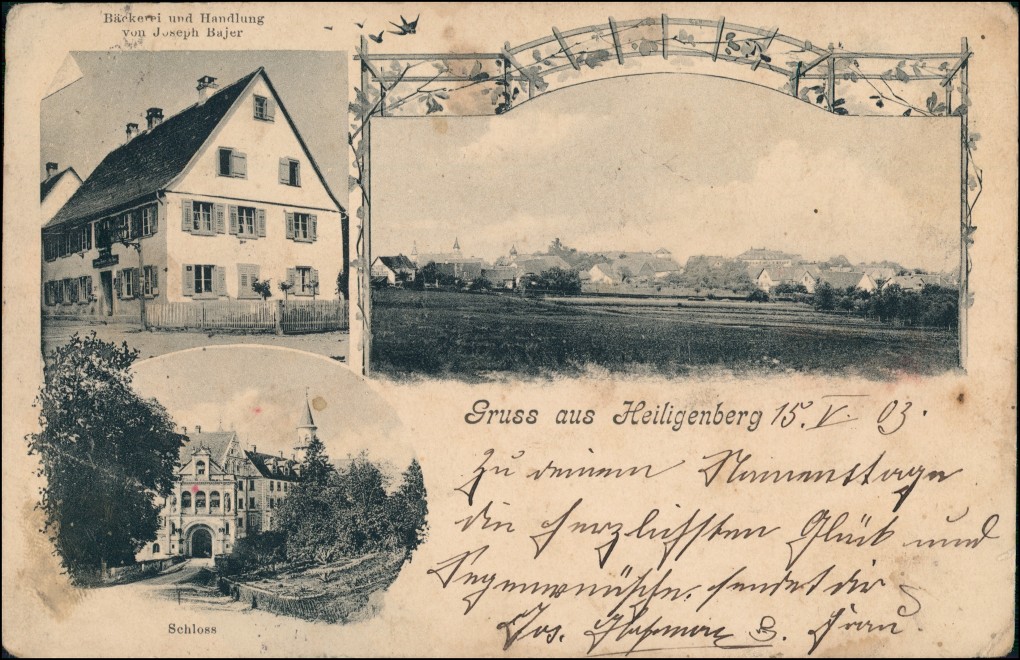 Bäckerei und Handlung
von Joseph Bajer
Gruss aus Heiligenberg 15. V. 03.
Zu deinem Namenstage
die herzlichsten Glück und
Segenwünsche. sendet dir
Jos. Frau.
Schloss